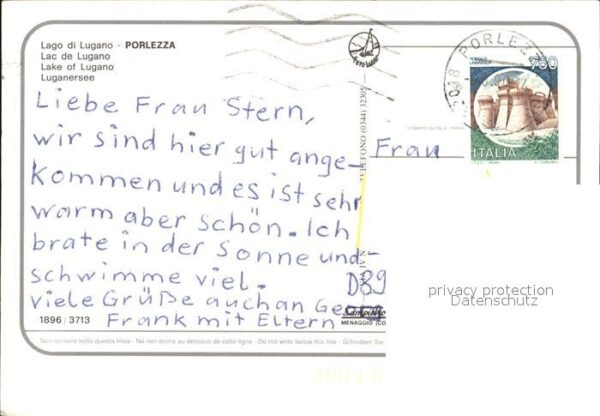 Lago di Lugano - PORLEZZA
Lac de Lugano
Lake of Lugano
Luganersee
Liebe Frau Stern,
wir sind hier gut ange-
kommen und es ist sehr
warm aber schön. Ich
brate in der Sonne und
schwimme viel.
viele Grüße auch an Georg
Frank mit Eltern
1896/3713
TELEFONO (0344) 32305
MENAGGIO (CO
PORLEZZ
750
ITALIA
Frau
D89
privacy protection
Datenschutz
Non scrivere sotto questa linea - Ne rien écrire au dessous de cette ligne - Do not write below this line - Schreiben Sie